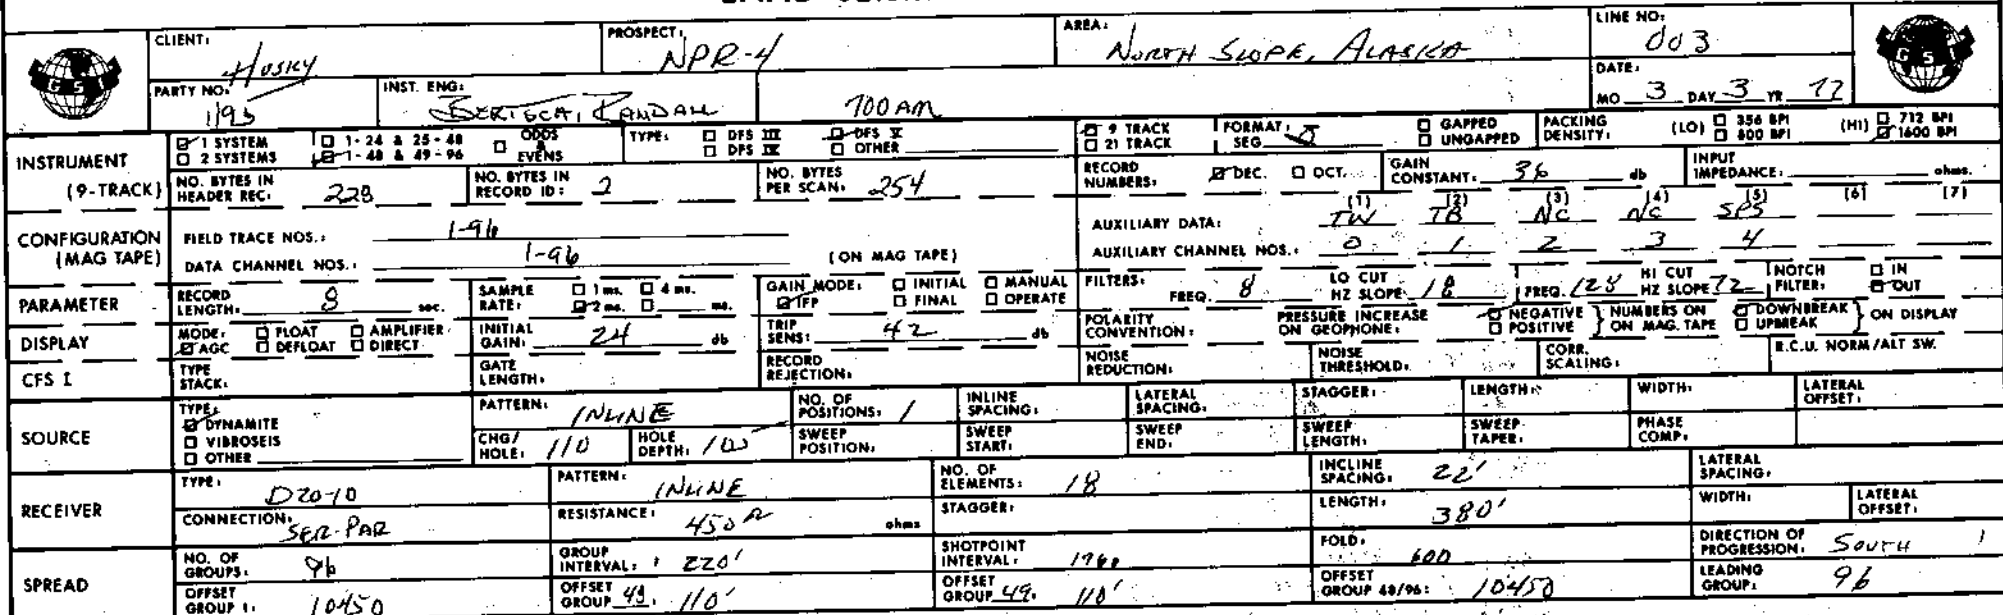 CLIENT: HUSKY PROSPECT: NPR-4 AREA: NORTH SLOPE, ALASKA LINE NO: 003
GSI GSI
PARTY NO: 1193 INST. ENG: RANDALL 700 AM DATE: MO 3 DAY 3 YR 77
INSTRUMENT (9-TRACK) 1 SYSTEM 1-24 & 25-48 ODDS & EVENS TYPE: DFS III DFS V 9 TRACK FORMAT: GAPPED PACKING DENSITY: (LO) 356 BPI (HI) 712 BPI
2 SYSTEMS 1-48 & 49-96 DFS IV OTHER 21 TRACK SEG UNGAPPED 800 BPI 1600 BPI
NO. BYTES IN HEADER REC: 228 NO. BYTES IN RECORD ID: 2 NO. BYTES PER SCAN: 254 RECORD NUMBERS: DEC. OCT. GAIN CONSTANT: 36 db INPUT IMPEDANCE: ohms.
CONFIGURATION (MAG TAPE) FIELD TRACE NOS.: 1-96 AUXILIARY DATA: (1) TW (2) TB (3) N/C (4) N/C (5) SPS (6) (7)
DATA CHANNEL NOS.: 1-96 (ON MAG TAPE) AUXILIARY CHANNEL NOS.: 0 1 2 3 4
PARAMETER RECORD LENGTH: 8 sec. SAMPLE RATE: 1 ms. 4 ms. 2 ms. ms. GAIN MODE: INITIAL MANUAL IFP FINAL OPERATE FILTERS: FREQ. 8 LO CUT HZ SLOPE 18 FREQ. 128 HI CUT HZ SLOPE 72 NOTCH FILTER: IN OUT
DISPLAY MODE: FLOAT AMPLIFIER AGC DEFLOAT DIRECT INITIAL GAIN: 24 db TRIP SENS: 42 db POLARITY CONVENTION: PRESSURE INCREASE ON GEOPHONE: NEGATIVE POSITIVE } NUMBERS ON ON MAG. TAPE DOWNBREAK UPBREAK } ON DISPLAY
CFS I TYPE STACK: GATE LENGTH: RECORD REJECTION: NOISE REDUCTION: NOISE THRESHOLD: CORR. SCALING: R.C.U. NORM/ALT SW.
SOURCE TYPE: DYNAMITE VIBROSEIS OTHER PATTERN: INLINE NO. OF POSITIONS: 1 INLINE SPACING: LATERAL SPACING: STAGGER: LENGTH: WIDTH: LATERAL OFFSET:
CHG/HOLE: 110 HOLE DEPTH: SWEEP POSITION: SWEEP START: SWEEP END: SWEEP LENGTH: SWEEP TAPER: PHASE COMP:
RECEIVER TYPE: D20-10 PATTERN: INLINE NO. OF ELEMENTS: 18 INCLINE SPACING: 22' LATERAL SPACING:
CONNECTION: SER-PAR RESISTANCE: 450 Ω ohms STAGGER: LENGTH: 380' WIDTH: LATERAL OFFSET:
SPREAD NO. OF GROUPS: 96 GROUP INTERVAL: 220' SHOTPOINT INTERVAL: FOLD: 600 DIRECTION OF PROGRESSION: SOUTH
OFFSET GROUP 1: 10450 OFFSET GROUP 48: 110' OFFSET GROUP 49: 110' OFFSET GROUP 48/96: 10450 LEADING GROUP: 96